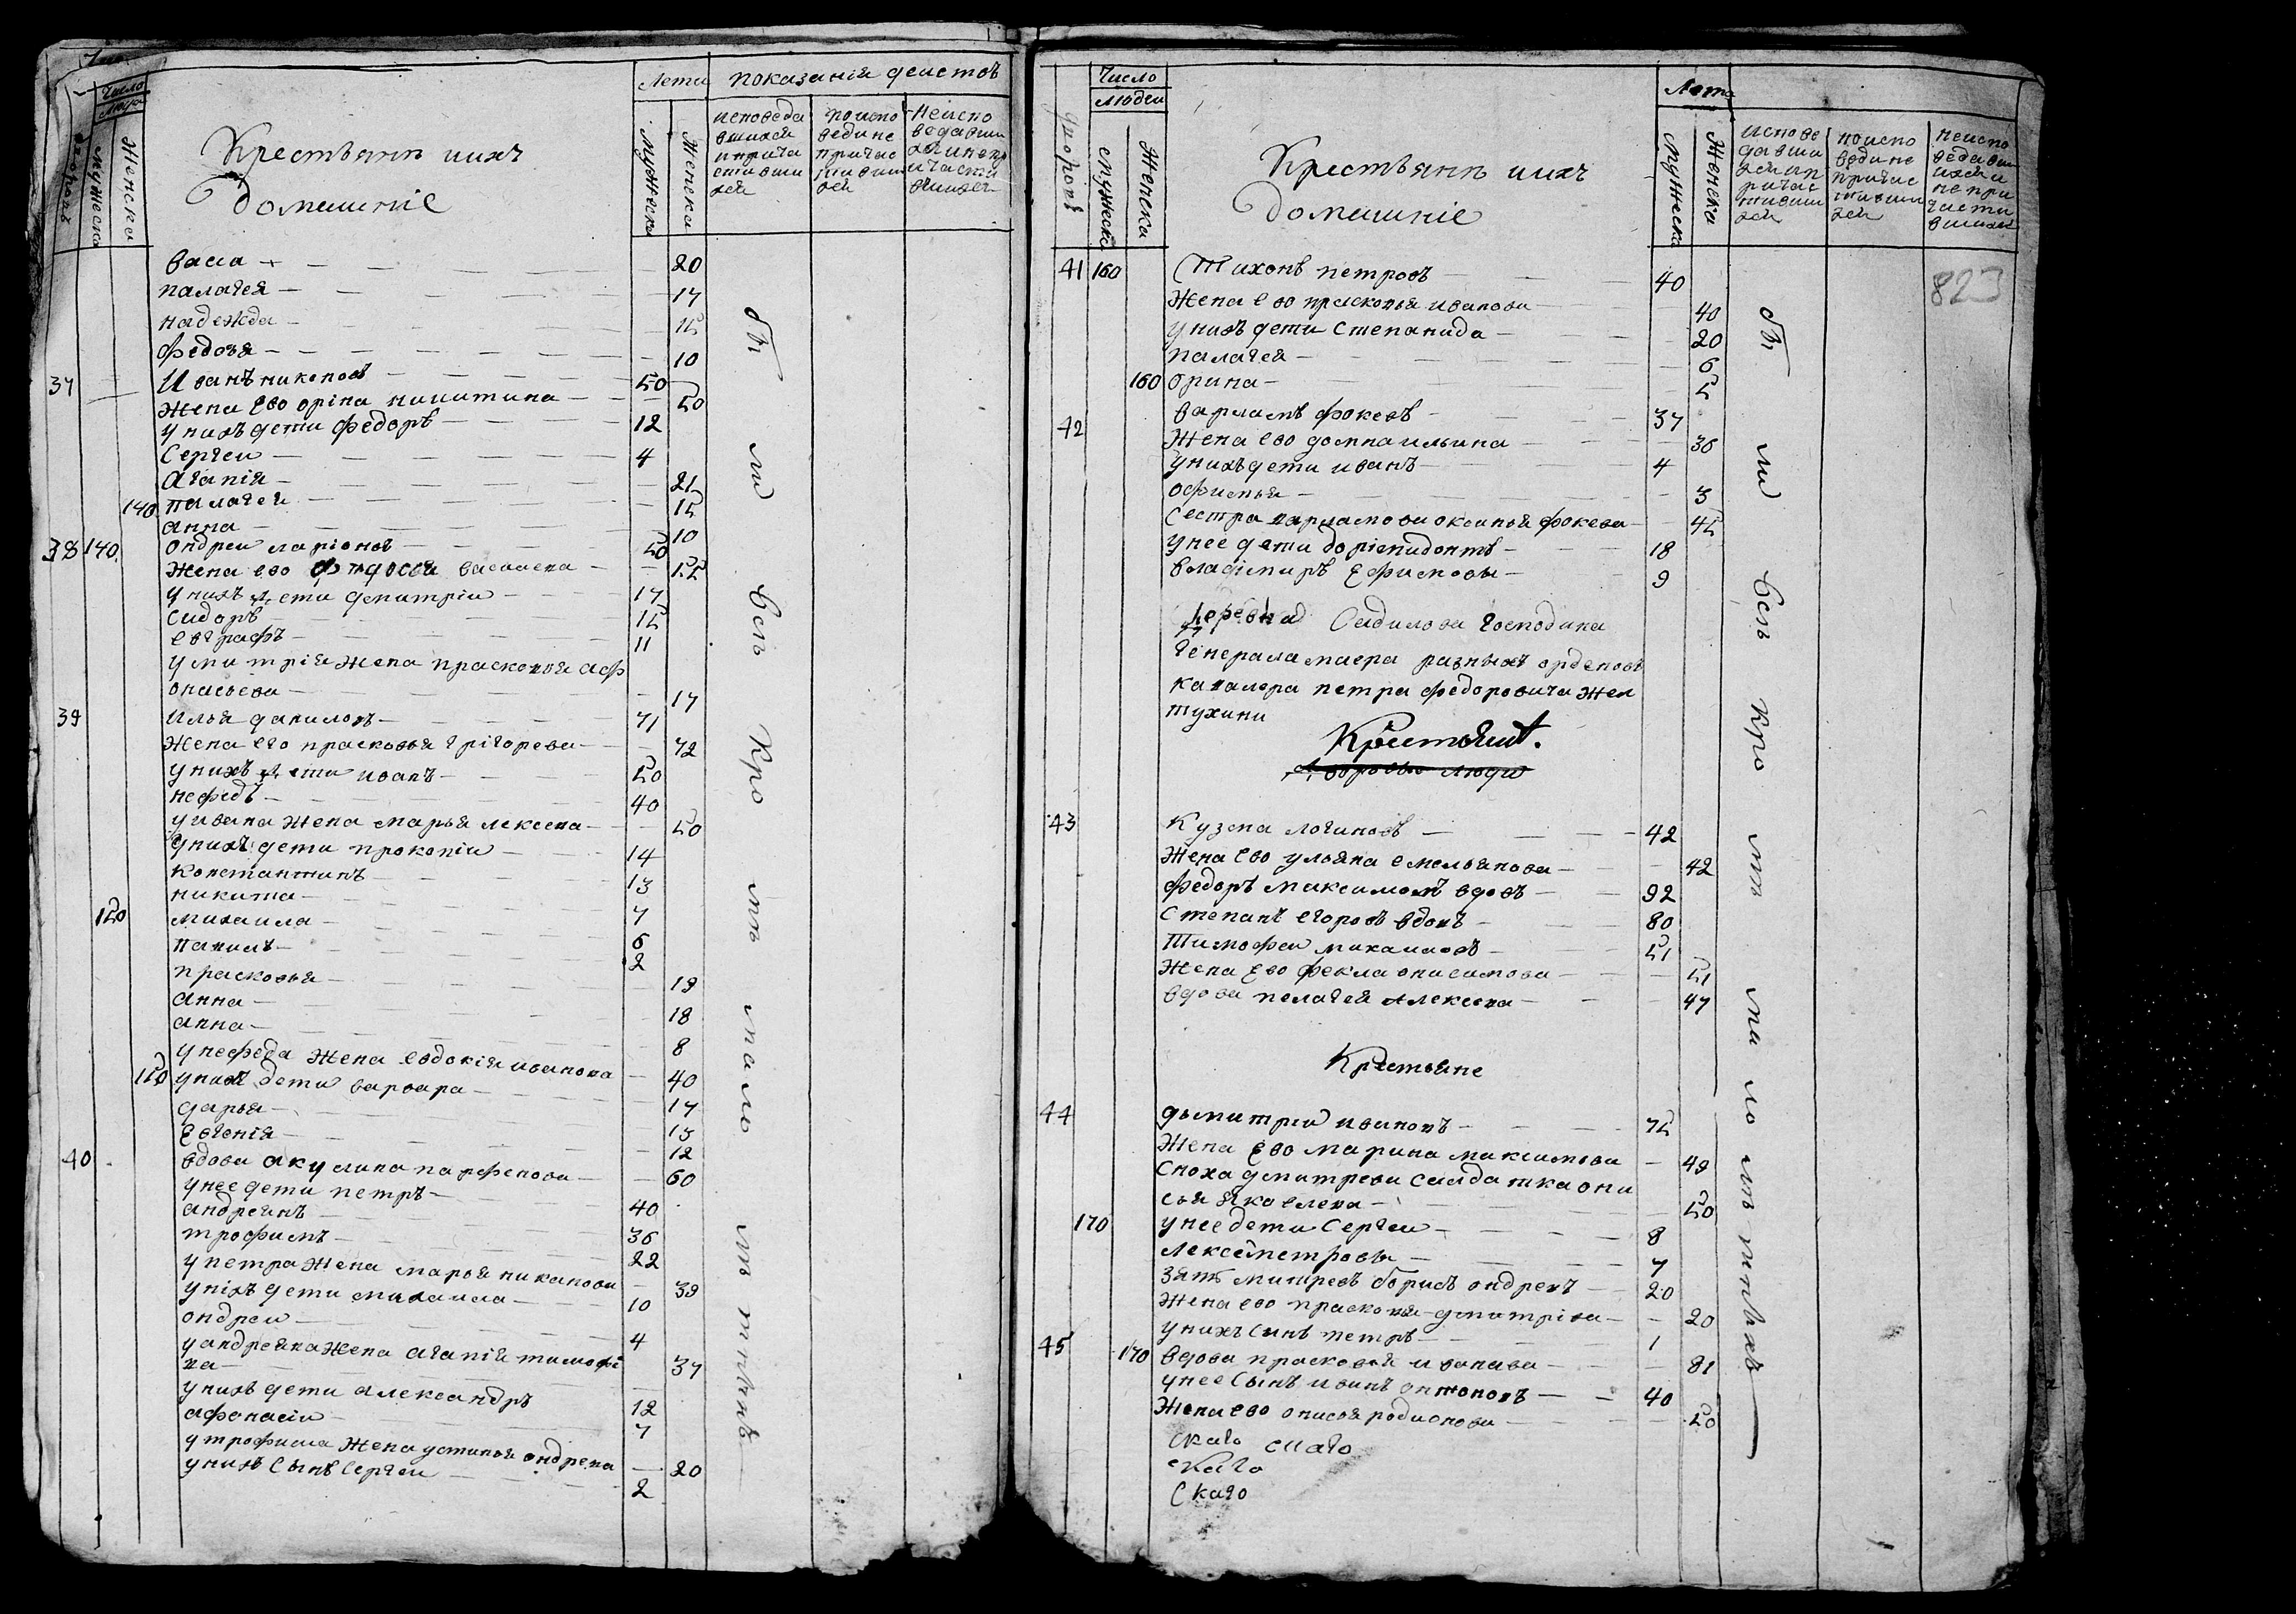 Число
Люде
дворовъ
мужеска
Женска
Крестьянѣ иихъ
домашнїе
Лета
показанїя деиствъ
мужеска
женска
исповеда
вшихся
иприча
стивши
хся
поиспо
ведине
причас
тивши
хся
неиспо
ведавши
васа 20
палагея 17
надежда 15
федозя 10
37 Иванъ никоновъ 50
Жена Ево орiна никитина 50
у нихъ дети федоръ 12
Сергеи 4
Агапiя 21
140 палагея 15
анна 10
38 140 ондреи ларiоновъ 50
Жена ево федосья василева 55
у нихъ дети дмитрiи 17
Сидоръ 15
евграфъ 11
у митрiя жена прасковья аф
онасьева 17
39 илья даниловъ 71
Жена его прасковья Грiгорева 72
у нихъ дети иванъ 50
нефедъ 40
у ивана жена марья лексеева 50
у нихъ дети прокопiи 14
константинъ 13
никита 7
150 михаила 6
панилъ 2
прасковья 19
анна 18
анна 8
у нефеда жена евдокiя иванова 40
150 у нихъ дети варвара 17
дарья 13
Евгенiя 12
40 вдова акулина парфенова 60
у нее дети петръ 40
андреянъ 36
трофимъ 22
у петра жена марья никанова 39
у нiхъ дети михаила 10
ондреи 4
у андреяна жена агапiя тимофе
ва 37
у нихъ дети александръ 12
афонасiи 7
у трофима жена устинья ондрева 20
у нихъ Сынъ Сергеи 2
Число
людеи
дворовъ
мужеска
Женска
Крестьянѣ иихъ
домашнiе
Лета
мужеска
Женска
испове
давши
хся ип
ричас
тивши
хся
поиспо
веди не
причас
тивши
хся
неиспо
ведавш
ихся и
не при
части
вшихся
823
41 160 Тихонъ петровъ 40
Жена ево прасковья иванова 40
у нихъ дети Степанида 20
палагея 6
160 орина 5
42 варламъ фокеевъ 37
Жена ево домна ильина 36
у нихъ дети иванъ 4
офимья 3
Сестра варламова оксинья фокева 45
у нее дети дорiмидонтъ 18
володiмиръ Ефимовы 9
деревня Садилова господина
генерала маера разныхъ орденовъ
кавалера петра федоровича жел
тухина
Крестьяня.
дворовые люди
43 Кузма логиновъ 42
Жена ево ульяна емельянова 42
федоръ максимовъ вдовъ 92
Степанъ егоровъ вдовъ 80
Тимофеи михаиловъ 51
Жена Ево фекла онисимова 51
вдова пелагея алексеева 47
Крестьяне
44 дьмитреи ивановъ 75
Жена Ево марина максимова 49
Сноха дмитрева салдатка они
сья яковлева 50
170 у нее дети Сергеи 8
лексеи петровы 7
зять митревъ борисъ ондревъ 20
Жена ево прасковья дмитрiева 20
у нихъ Сынъ петръ 1
45 170 вдова прасковья иванава 81
у нее Сынъ иванъ онтоновъ 40
Жена ево онисья родионова 50
Скаго Скаго
Скаго
Скаго